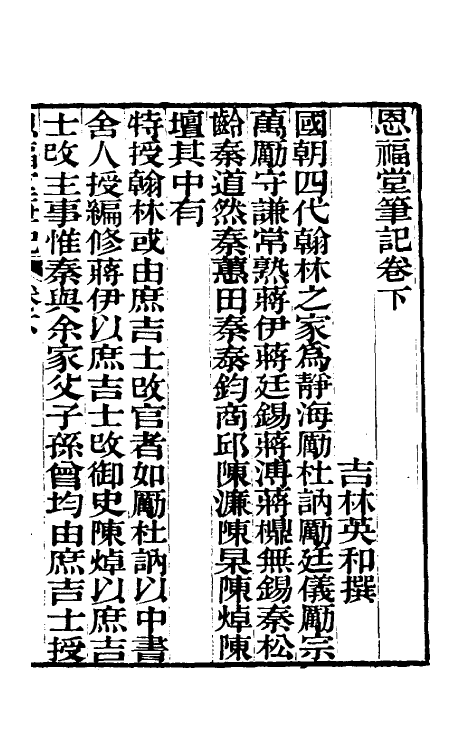 恩福堂筆記卷下
吉林英和撰
國朝四代翰林之家爲靜海勵杜訥勵廷儀勵宗
萬勵守謙常熟蔣伊蔣廷錫蔣溥蔣檙無錫秦松
齡秦道然秦蕙田秦泰鈞商邱陳濂陳杲陳焯陳
壇其中有
特授翰林或由庶吉士改官者如勵杜訥以中書
舍人授編修蔣伊以庶吉士改御史陳焯以庶吉
士改主事惟秦與余家父子孫曾均由庶吉士授